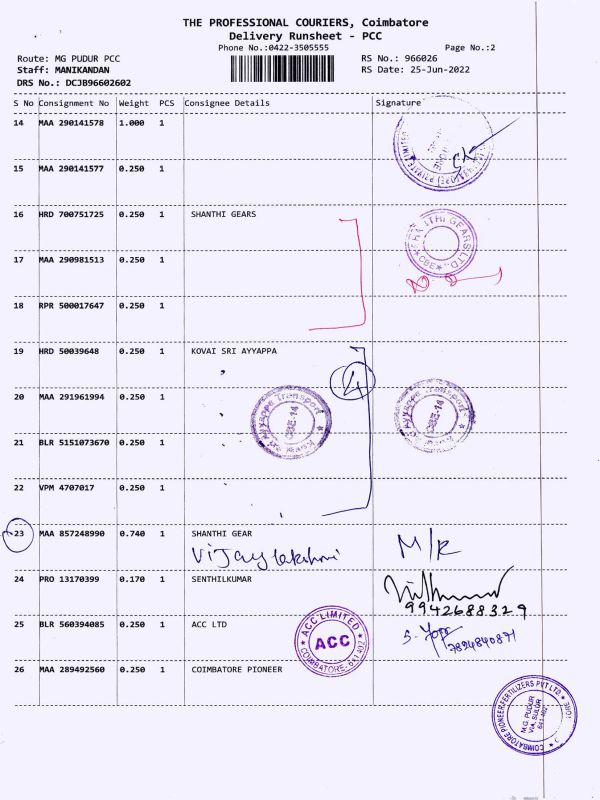 THE PROFESSIONAL COURIERS, Coimbatore
Delivery Runsheet - PCC
Phone No.:0422-3505555 Page No.:2
Route: MG PUDUR PCC RS No.: 966026
Staff: MANIKANDAN RS Date: 25-Jun-2022
DRS No.: DCJB96602602
S No Consignment No Weight PCS Consignee Details Signature
14 MAA 290141578 1.000 1
15 MAA 290141577 0.250 1
PRIVATE LIMITED
16 HRD 700751725 0.250 1 SHANTHI GEARS
GEARS LTD.
CBE
17 MAA 290981513 0.250 1
18 RPR 500017647 0.250 1
19 HRD 50039648 0.250 1 KOVAI SRI AYYAPPA
4
20 MAA 291961994 0.250 1
Transport
CBE-14
Transport
CBE-14
21 BLR 5151073670 0.250 1
22 VPM 4707017 0.250 1
23 MAA 857248990 0.740 1 SHANTHI GEAR
Vijaylakshmi M/R
24 PRO 13170399 0.170 1 SENTHILKUMAR
9942688329
25 BLR 560394085 0.250 1 ACC LTD
ACC LIMITED
ACC
COIMBATORE-641 402
7894840871
26 MAA 289492560 0.250 1 COIMBATORE PIONEER
COIMBATORE PIONEER FERTILIZERS PVT LTD
M.G. PUDUR
VIA, SULUR
641 402